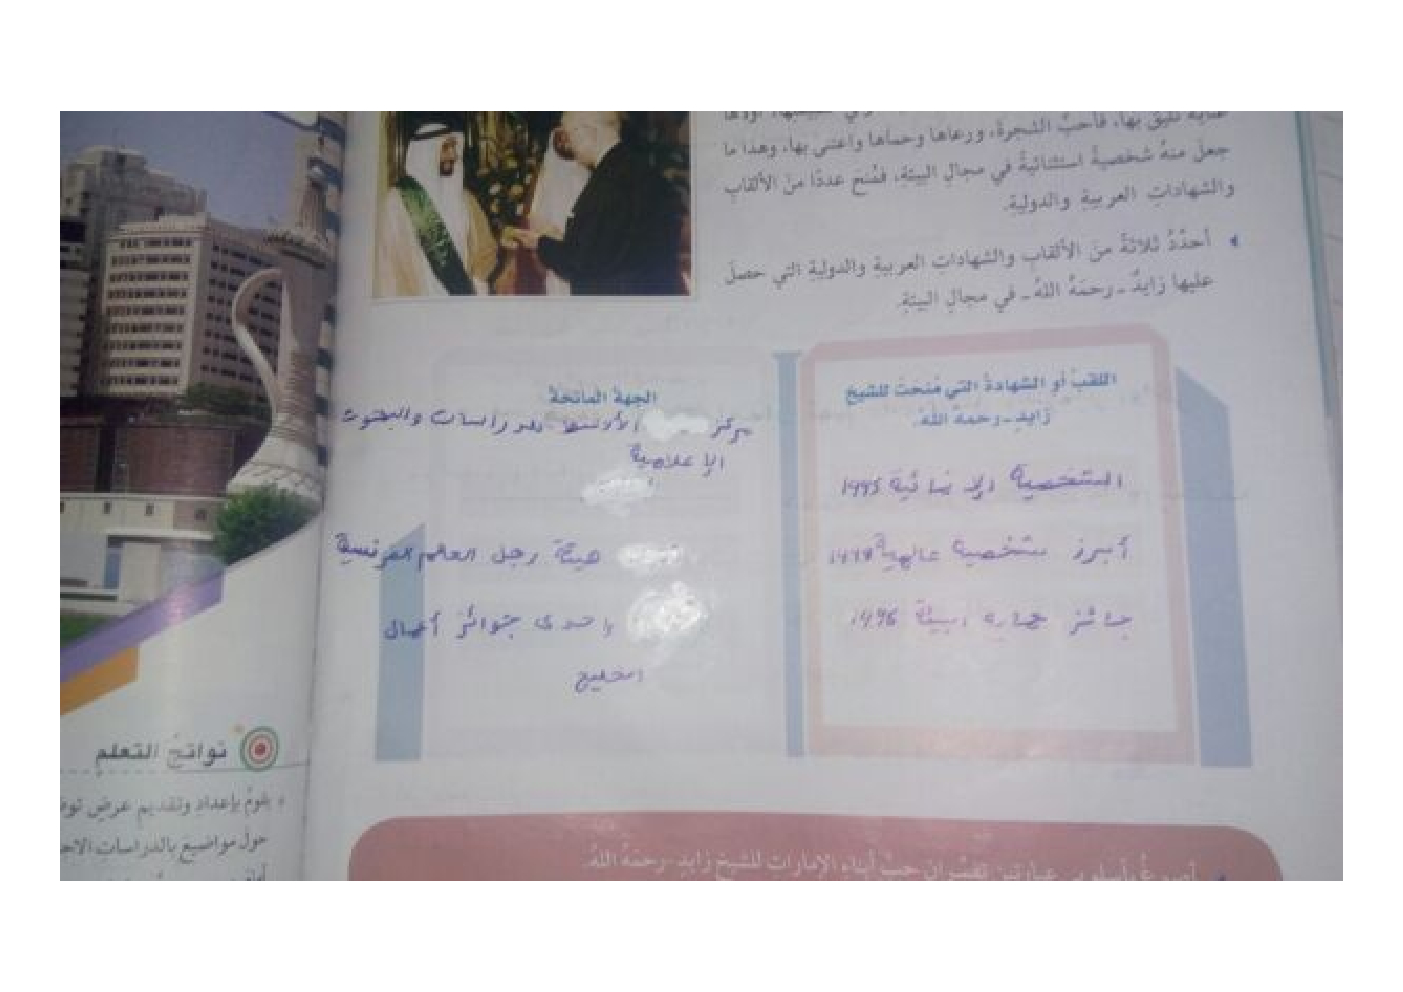 عناية تليق بها، فأحبَّ الشجرةَ، ورعاها وحماها واعتنى بها، وهذا ما
جعلَ منهُ شخصيةً استثنائيةً في مجالِ البيئةِ، فمُنحَ عددًا منَ الألقابِ
والشهاداتِ العربيةِ والدوليةِ.
أحدِّدُ ثلاثةً منَ الألقابِ والشهاداتِ العربيةِ والدوليةِ التي حصلَ
عليها زايدٌ - رحمَهُ اللهُ - في مجالِ البيئةِ.
اللقبُ أو الشهادةُ التي مُنحتْ للشيخِ
زايدٍ - رحمهُ اللهُ.
الشخصية الإنمائية 1995
أبرز شخصية عالمية
جائز حماية البيئة 1996
الجهةُ المانحةُ
مركز للدراسات والبحوث
الإعلامية
هيئة رجل العام الفرنسية
إحدى جوائز أعمال
الخليج
أصوغُ بأسلوبي عبارتينِ تفسِّرانِ حبَّ أبناءِ الإماراتِ للشيخِ زايدٍ - رحمَهُ اللهُ.
نواتجُ التعلمِ
يقومُ بإعدادِ وتقديمِ عرضٍ
حولَ مواضيعَ بالدراساتِ